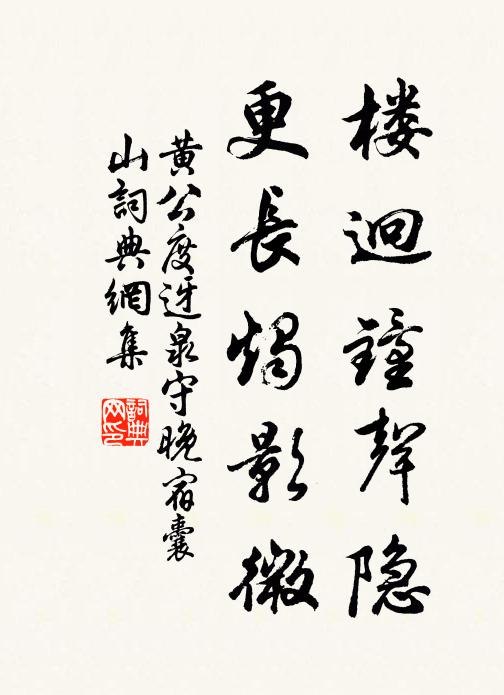 楼迥鐘聲隐
更長燭影微
黄公度迓泉守晚宿囊
山詞典網集
詞典
网印